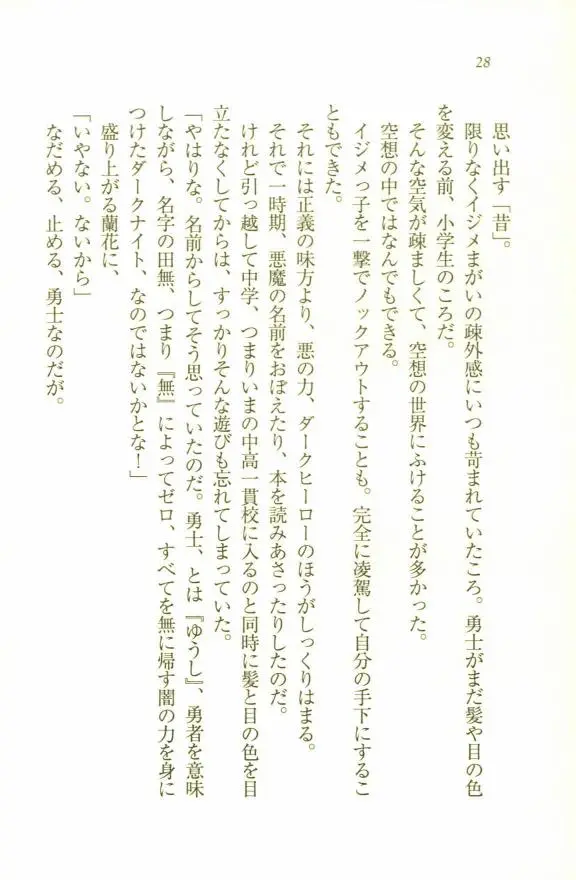 28
思い出す「昔」。
限りなくイジメまがいの疎外感にいつも苛まれていたころ。勇士がまだ髪や目の色
を変える前、小学生のころだ。
そんな空気が疎ましくて、空想の世界にふけることが多かった。
空想の中ではなんでもできる。
イジメっ子を一撃でノックアウトすることも。完全に凌駕して自分の手下にするこ
ともできた。
それには正義の味方より、悪の力、ダークヒーローのほうがしっくりはまる。
それで一時期、悪魔の名前をおぼえたり、本を読みあさったりしたのだ。
けれど引っ越して中学、つまりいまの中高一貫校に入るのと同時に髪と目の色を目
立たなくしてからは、すっかりそんな遊びも忘れてしまっていた。
「やはりな。名前からしてそう思っていたのだ。勇士、とは『ゆうし』、勇者を意味
しながら、名字の田無、つまり『無』によってゼロ、すべてを無に帰す闇の力を身に
つけたダークナイト、なのではないかとな！」
盛り上がる蘭花に、
「いやない。ないから」
なだめる、止める、勇士なのだが。